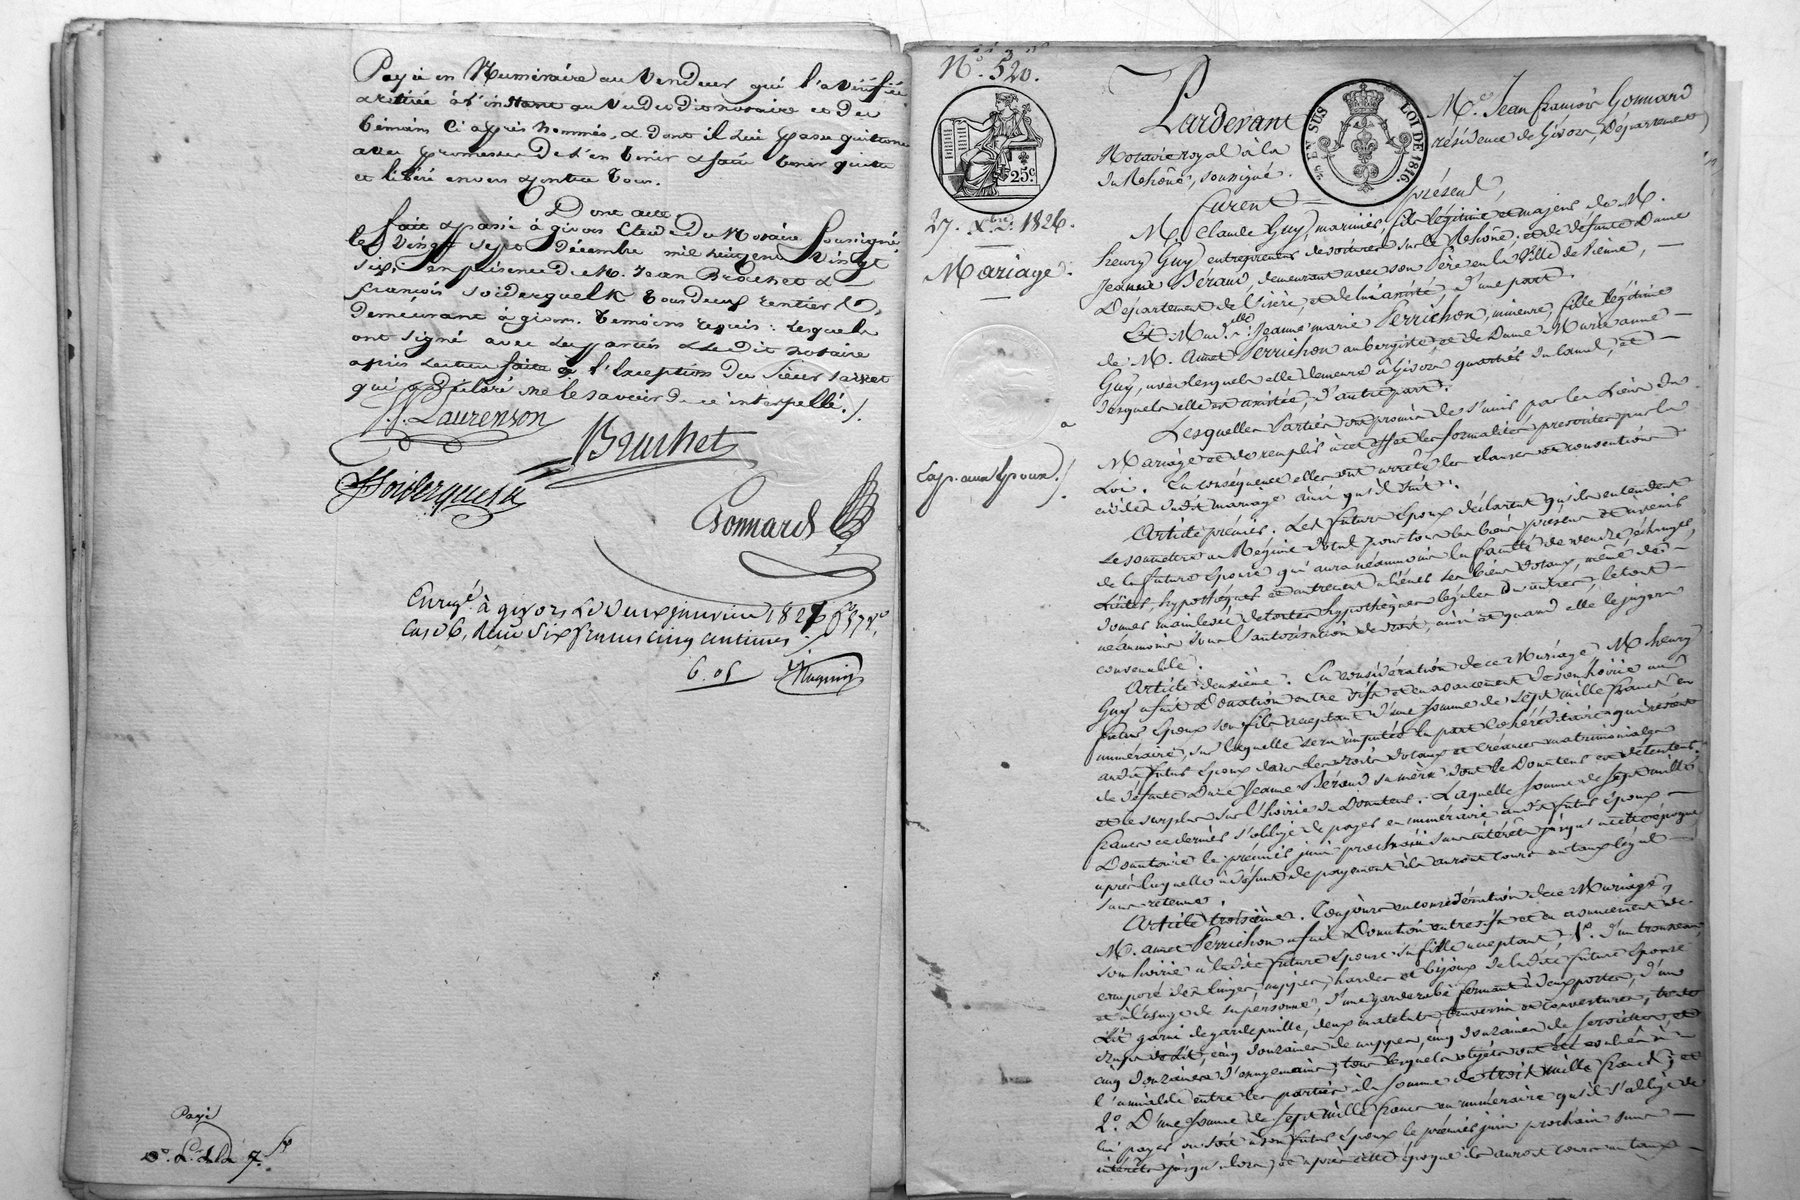 Payée en Numéraire au Vendeur qui l'a vérifiée
& retirée à l'instant au vu du dit notaire et des
témoins ci après nommés, & dont il lui passe quittance
avec promesse de l'en tenir & faire tenir quitte
et libéré envers & contre tous.
Dont acte.
fait & passé à givors Etude du Notaire Soussigné
le Vingt sept Décembre mil huit cent vingt
six, en présence de M. Jean Brachet &
françois Soiderquelk tous deux rentiers
demeurant à givors. témoins requis : lesquels
ont signé avec les parties & le dit notaire
après lecture faite à l'exception du sieur
qui a déclaré ne le savoir de ce interpellé ./.
J. J. Laurenson
Brachet
Soiderquelk
Gonnard
Enregé. à givors le deux janvier 1827 fo 37 Vo
Case 6, Reçu six francs cinq centimes
6. 05
Payé
7.
No. 520.
25c
27. Xbre. 1826.
Mariage.
Exp. aux Epoux ./.
EN SUS LOI DE 1816.
Pardevant Me. Jean françois Gonnard
Notaire royal à la résidence de Givors, Département
du Rhône, soussigné.
furent présent,
M. Claude Guy, marinier, fils légitime et majeur de M.
henry Guy entrepreneur de voitures sur le Rhône, et de défunte Dame
Jeanne Béraud, demeurant avec son Père en la Ville de Vienne, —
Département de l'isère, et de lui assisté, d'une part.
Et Mad.lle Jeanne marie Perrichon, mineure, fille légitime
de M. Amet Perrichon aubergiste, et de Dame Marie anne —
Guy, avec lesquels elle demeure à Givors quartier du Canal, et —
desquels elle est assistée, d'autre part.
Lesquelles Parties ont promis de s'unir par les Liens du
Mariage et de remplir à cet effet les formalités prescrites par la
Loi. En conséquence elles ont arrêté les clauses et conventions
civiles dudit mariage ainsi qu'il suit :
Article premier. Les futurs époux déclarent qu'ils entendent
se soumettre au Régime dotal pour tous les biens présens et avenir
de la future épouse qui aura néanmoins la faculté de vendre, échanger,
céder, hypothéquer et autrement aliéner ses biens dotaux, même de
donner mainlevée de toutes hypothèques légales ou autres, le tout —
néanmoins sous l'autorisation de droit, ainsi et quand elle le jugera
convenable.
Article deuxième. En considération de ce Mariage M. henry
Guy a fait Donation entre vifs et en avancement de son hoirie au
futur époux son fils acceptant d'une somme de sept mille francs en
numéraire, sur laquelle sera imputée la part cohéréditaire qui revient
audit futur époux dans les droits dotaux et créances matrimoniales
de défunte Dame Jeanne Béraud sa mère dont le Donateur est détenteur,
et le surplus sur l'hoirie du Donateur. Laquelle somme de sept mille
francs ce dernier s'oblige de payer en numéraire audit futur époux —
Donataire le premier juin prochain sans intérêts jusqu'à cette époque
après laquelle à défaut de payement ils auront cours au taux légal —
sans retenue.
Article troisième. Toujours en considération de ce Mariage,
M. amet Perrichon a fait Donation entre vifs et en avancement de
son hoirie à ladite future épouse sa fille acceptant, 1o. d'un trousseau
composé des linges, nippes, hardes et bijoux de ladite future épouse
et à l'usage de sa personne, d'une garderobe fermant à deux portes, d'un
Lit garni de gardepaille, deux matelats, traversin et couvertures,
draps de Lit, cinq douzaines de nappes, cinq douzaines de serviettes, et
cinq douzaines d'essuyemains, tous lesquels objets ont été évalués à
l'amiable entre les parties à la somme de trois mille francs ; et
2o. D'une somme de sept mille francs en numéraire qu'il s'oblige de
lui payer ou soit à son futur époux le premier juin prochain sans —
intérêts jusqu'alors, et après cette époque ils auront cours au taux —